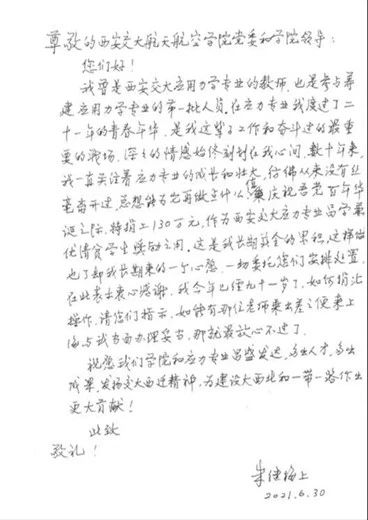 尊敬的西安交大航天航空学院党委和学院领导:
您们好!
我曾是西安交大应用力学专业的教师,也是参与筹
建应用力学专业的第一批人员.在应力专业我度过了二
十一年的青春年华,是我这辈子工作和奋斗过的最重
要的战场,深深的情感始终刻印在我心间,数十年来,
我一直关注着应力专业的成长和壮大,仿佛从来没有丝
毫离开过,总想能为它再做点什么,值兹庆祝吾党百年华
诞之际,特捐上130万元,作为西安交大应力专业品学兼
优清贫学生奖励之用.这是我长期薪金的累积,这样做
也了却我长期来的一个心愿,一切委托您们安排处置,
在此表示衷心感谢,我今年已经九十一岁了,如何捐汇
操作,请您们指示,如能有那位老师来出差之便来上
海与我当面办理妥当,那就最放心不过了.
祝您我们学院和应力专业昌盛发达,多出人才,多出
成果,发扬交大西迁精神,为建设大西北和一带一路作出
更大贡献!
此致
敬礼!
朱继梅上
2021.6.30